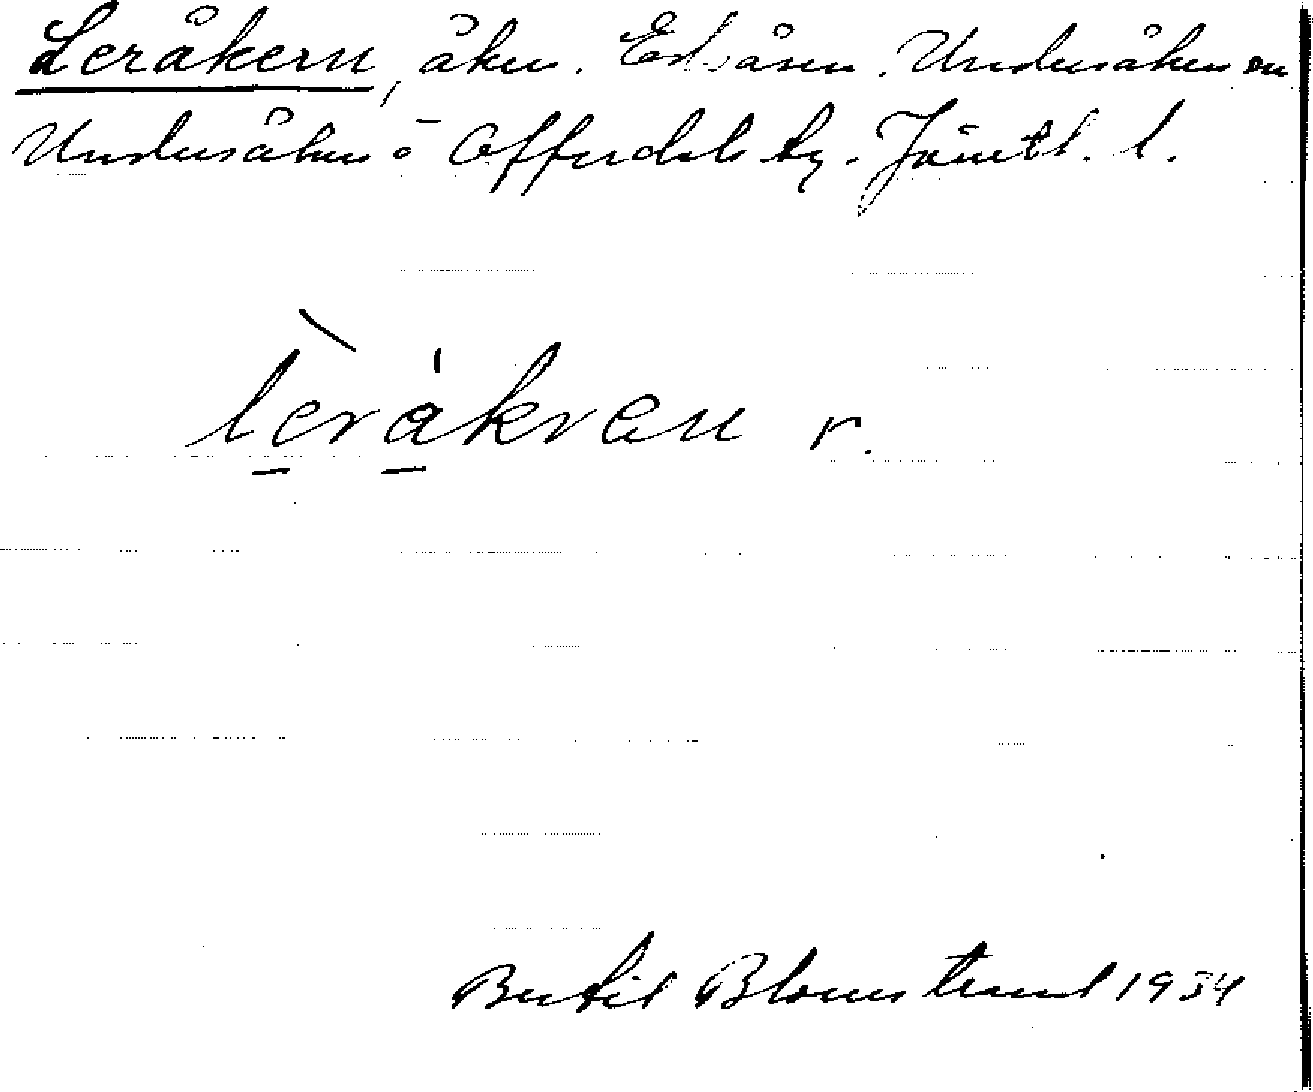 Leråkern, åker. Edsåsen. Undersåkers sn
Undersåkers o Offerdals tg. Jämtl. l.
leråkren r.
Bertil Blomstrand 1934